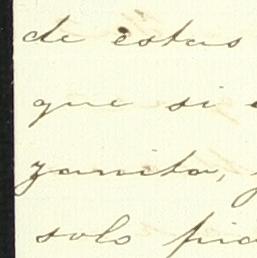 de estas
que si
zarcita,
solo